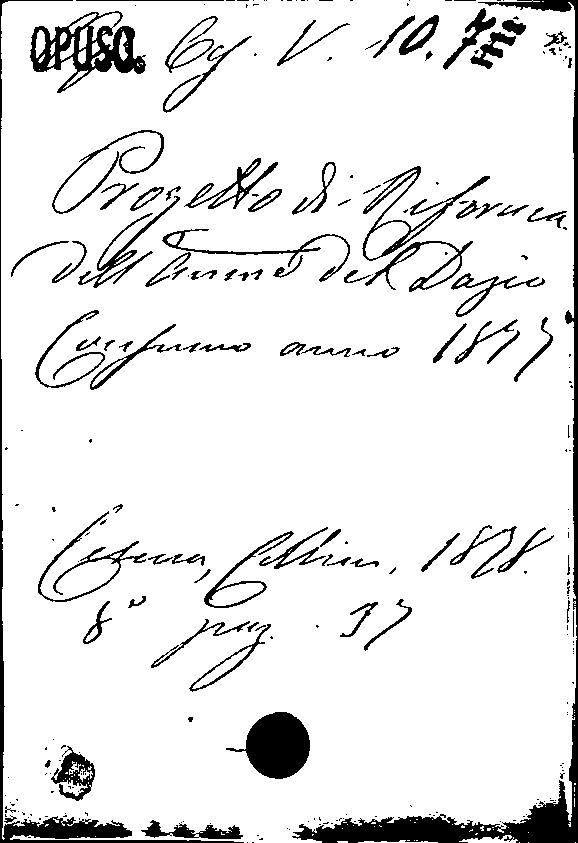 OPUSC. Cg. V. 10. 7
Progetto di Riforma
dell' Azienda del Dazio
Consumo anno 1877
Cesena, Collini, 1878.
8° pag. 37